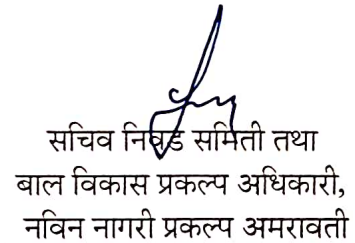 सचिव निवड समिती तथा
बाल विकास प्रकल्प अधिकारी,
नविन नागरी प्रकल्प अमरावती